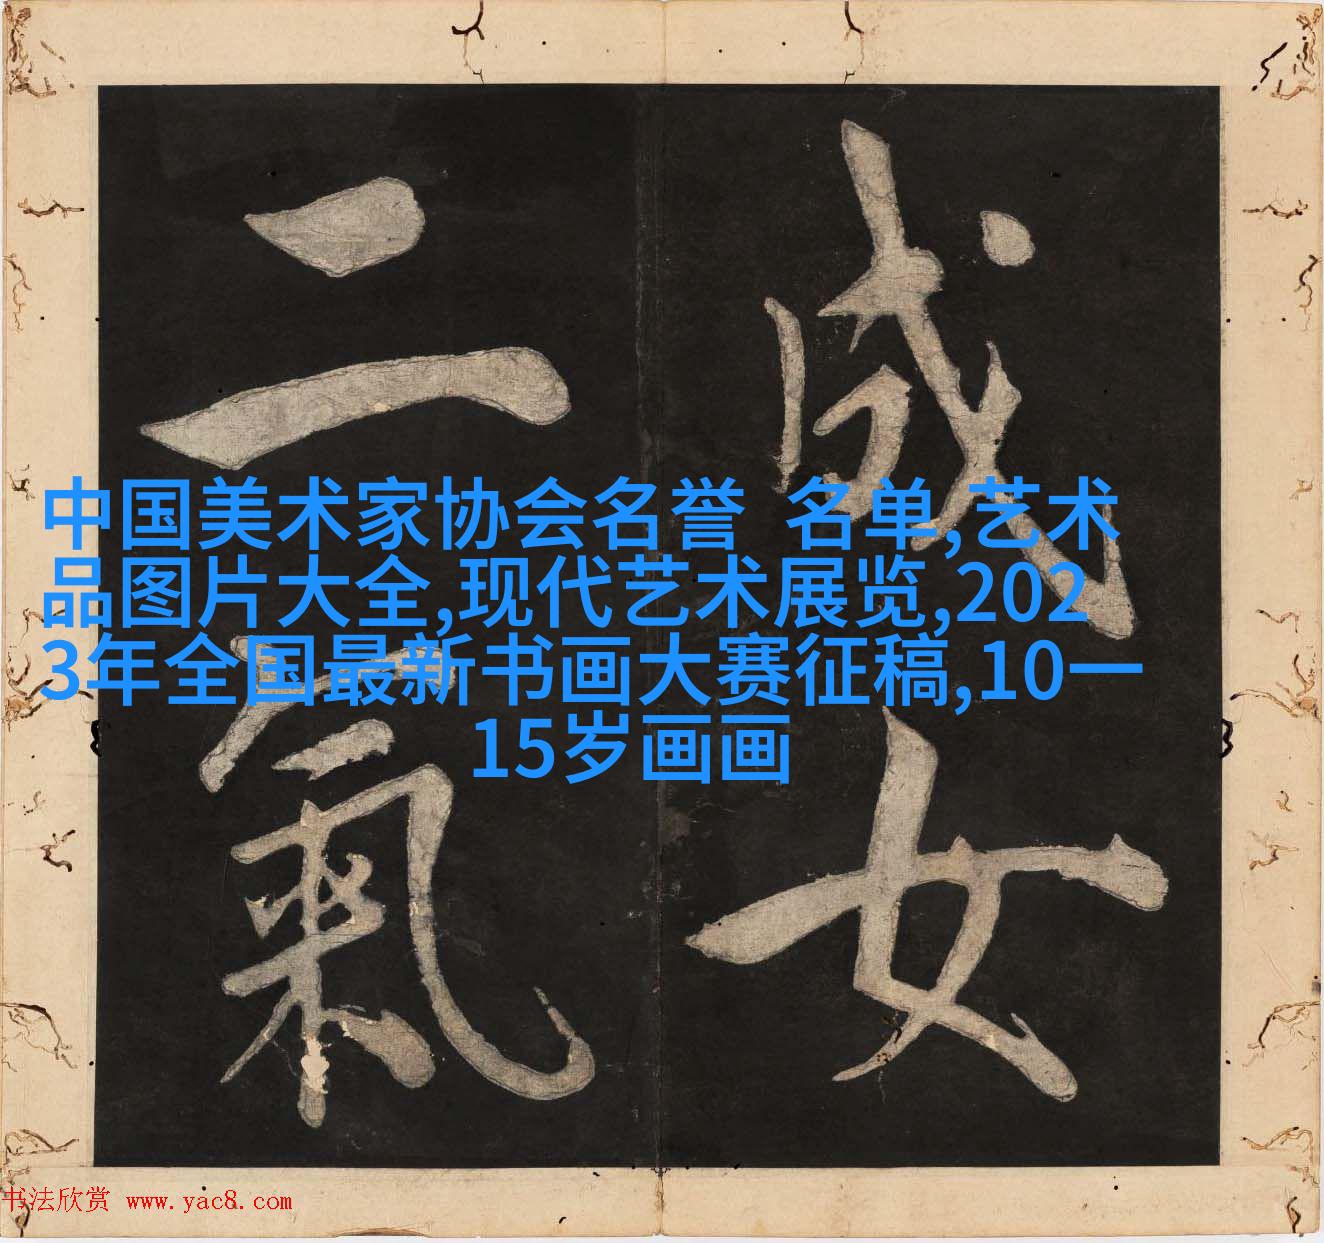 成女
二氣
中国美术家协会名誉 名单,艺术
品图片大全,现代艺术展览,202
3年全国最新书画大赛征稿,10一
15岁画画
书法欣赏 www.yac8.com